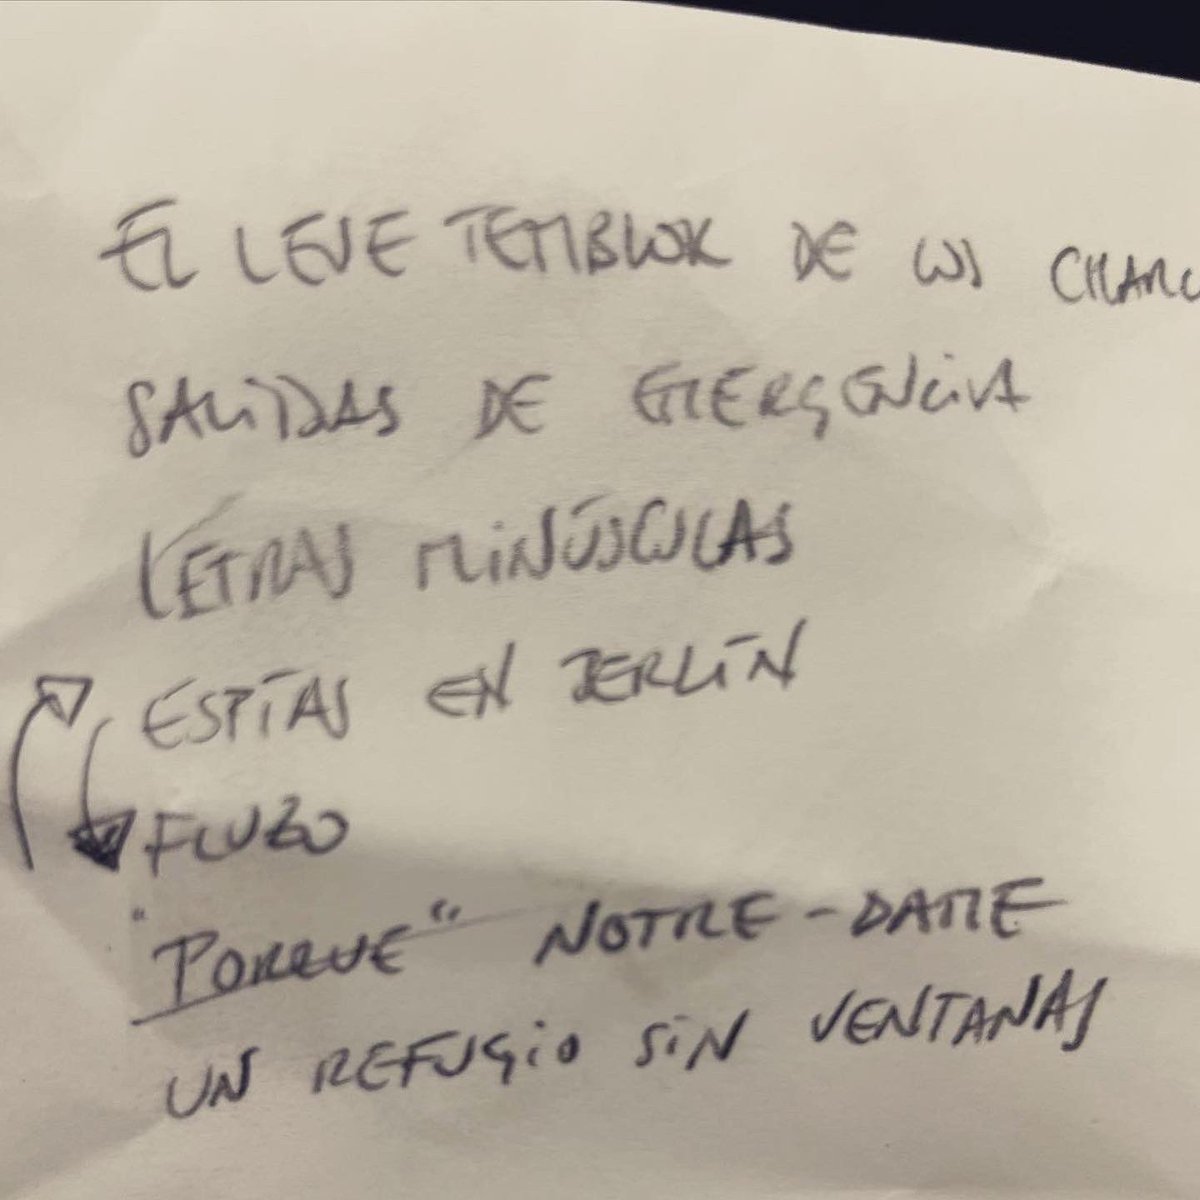 EL LEVE TEMBLOR DE LOS CHARC
SALIDAS DE EMERGENCIA
LETRAS MINÚSCULAS
ESPÍAS EN BERLÍN
FLUZO
"PORQUE" NOTRE-DAME
UN REFUGIO SIN VENTANAS